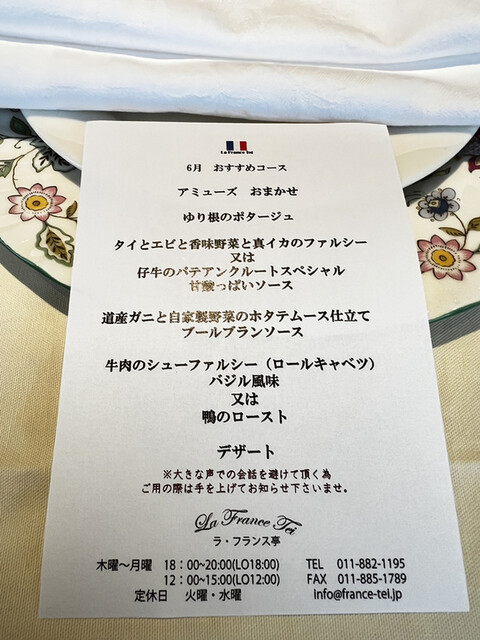 La France Tei
6月 おすすめコース
アミューズ おまかせ
ゆり根のポタージュ
タイとエビと香味野菜と真イカのファルシー
又は
仔牛のパテアンクルートスペシャル
甘酸っぱいソース
道産ガニと自家製野菜のホタテムース仕立て
ブールブランソース
牛肉のシューファルシー（ロールキャベツ）
バジル風味
又は
鴨のロースト
デザート
※大きな声での会話を避けて頂く為
ご用の際は手を上げてお知らせ下さいませ。
La France Tei
ラ・フランス亭
木曜～月曜 18：00~20:00(LO18:00) TEL 011-882-1195
12：00~15:00(LO12:00) FAX 011-885-1789
定休日 火曜・水曜 info@france-tei.jp